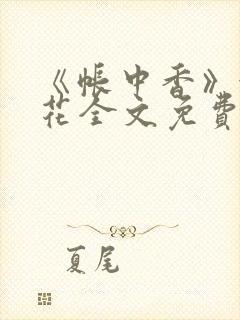 《帐中香》
花全文免費
夏尾